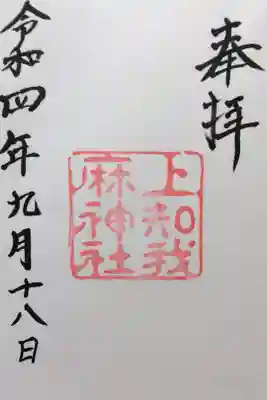 奉拝
上知我
麻神社
令和四年九月十八日